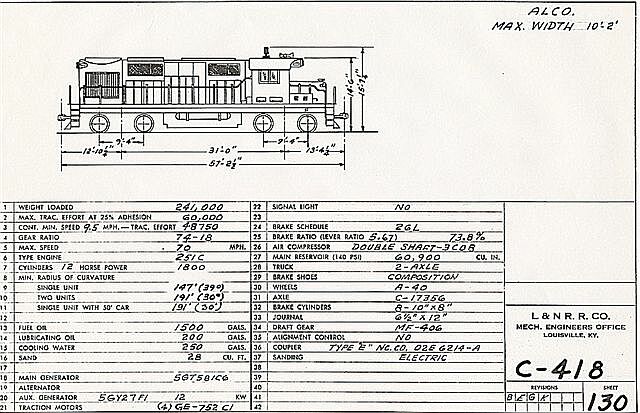 ALCO.
MAX. WIDTH 10'-2'
14'-6"
15'-7⅛"
9'-4"
9'-4"
12'-10¼"
31'-0"
13'-4¼"
57'-2½"
1 WEIGHT LOADED 241,000
2 MAX. TRAC. EFFORT AT 25% ADHESION 60,000
3 CONT. MIN. SPEED 9.5 MPH.—TRAC. EFFORT 48750
4 GEAR RATIO 74-18
5 MAX. SPEED 70 MPH.
6 TYPE ENGINE 251C
7 CYLINDERS 12 HORSE POWER 1800
8 MIN. RADIUS OF CURVATURE
9 SINGLE UNIT 147' (39°)
10 TWO UNITS 191' (30°)
11 SINGLE UNIT WITH 50' CAR 191' (30°)
12
13 FUEL OIL 1500 GALS.
14 LUBRICATING OIL 200 GALS.
15 COOLING WATER 250 GALS.
16 SAND 28 CU. FT.
17
18 MAIN GENERATOR 5GT581C6
19 ALTERNATOR
20 AUX. GENERATOR 5GY27F1 12 KW
21 TRACTION MOTORS (4) GE-752 C1
22 SIGNAL LIGHT NO
23
24 BRAKE SCHEDULE 26L
25 BRAKE RATIO (LEVER RATIO 5.67) 73.8%
26 AIR COMPRESSOR DOUBLE SHAFT-3CDB
27 MAIN RESERVOIR (140 PSI) 60,900 CU. IN.
28 TRUCK 2-AXLE
29 BRAKE SHOES COMPOSITION
30 WHEELS A-40
31 AXLE C-17356
32 BRAKE CYLINDERS 8-10"X8"
33 JOURNAL 6½"X12"
34 DRAFT GEAR MF-406
35 ALIGNMENT CONTROL NO
36 COUPLER TYPE "E" NC.CO. 025 6214-A
37 SANDING ELECTRIC
38
39
40
41
42
L & N R. R. CO.
MECH. ENGINEERS OFFICE
LOUISVILLE, KY.
C-418
REVISIONS SHEET
130